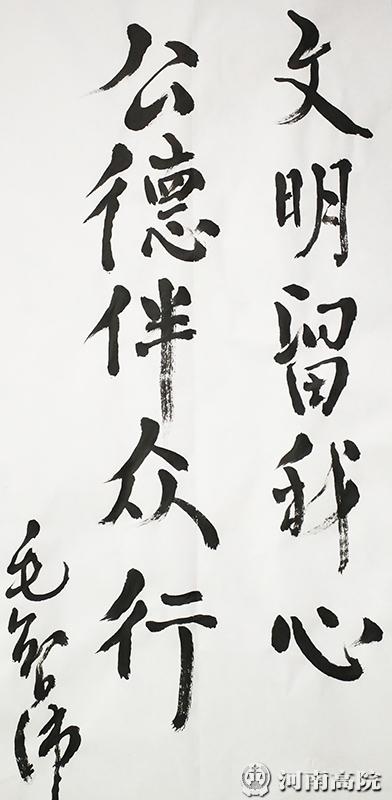 文明留我心
公德伴众行
毛智伟
河南高院